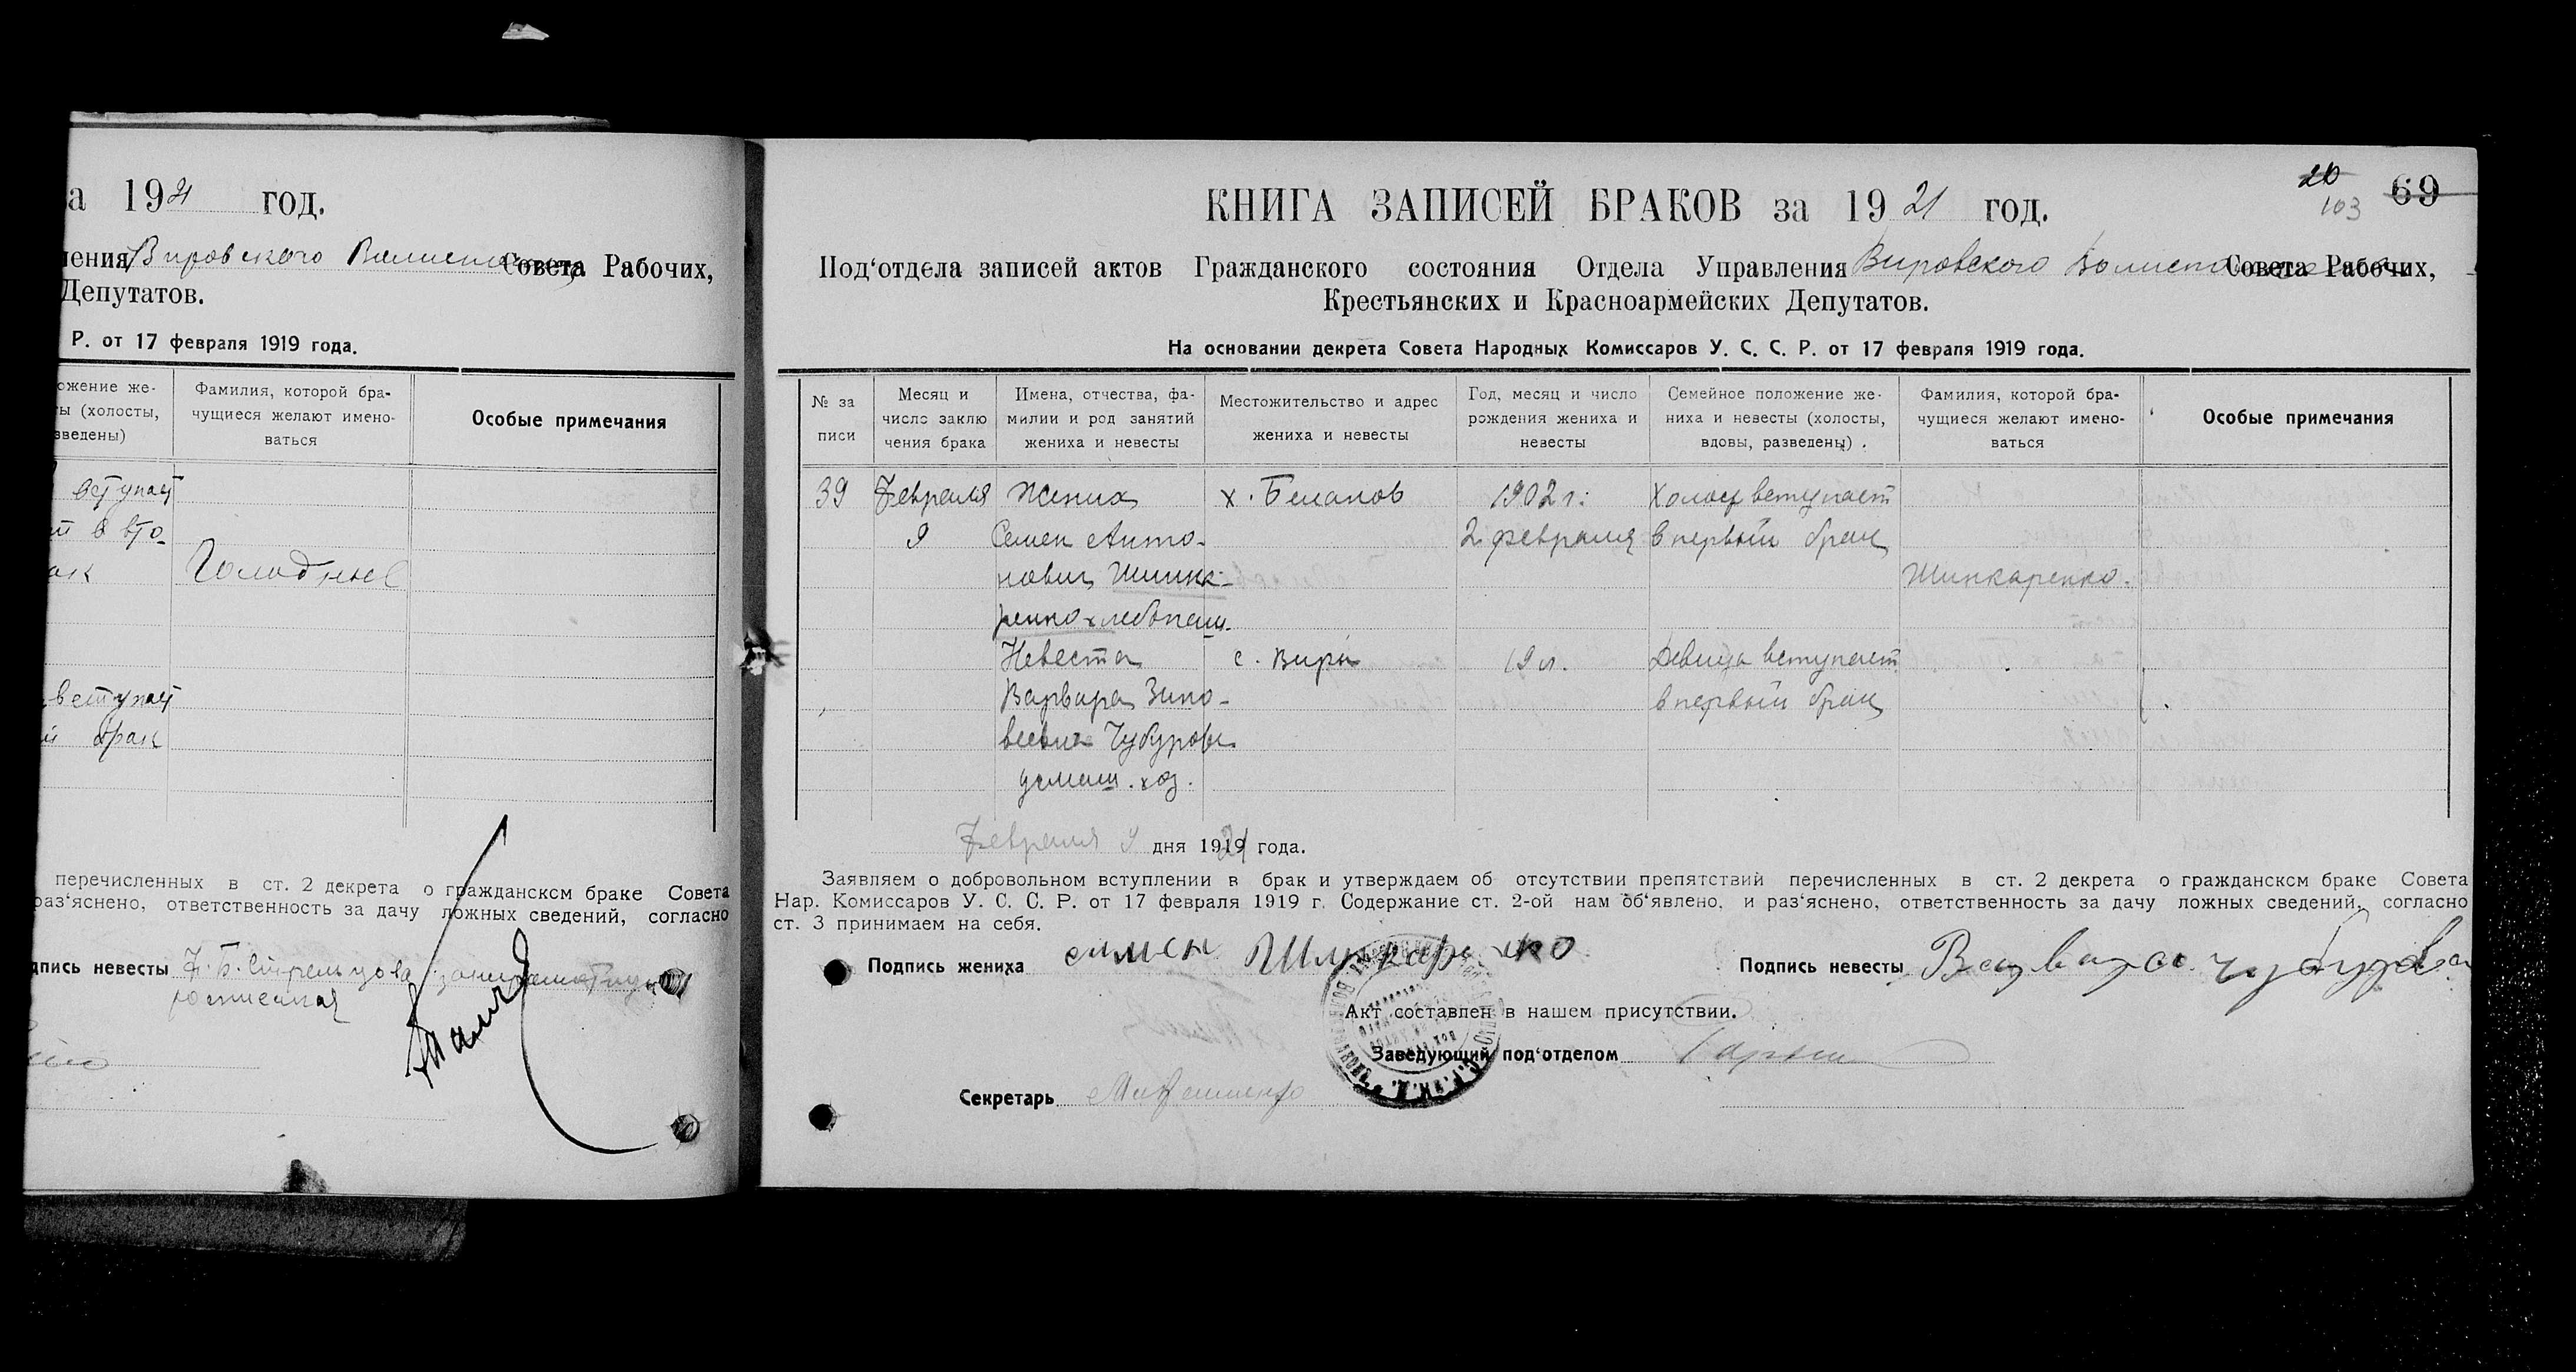 а 1921 год.
ления Вировского Совета Рабочих,
Депутатов.
Р. от 17 февраля 1919 года.
ожение же-
ты (холосты,
зведены)
Фамилия, которой бра-
чущиеся желают имено-
ваться
Особые примечания
вступает
й в вто-
ак
вступает
й брак
перечисленных в ст. 2 декрета о гражданскем браке Совета
раз‘яснено, ответственность за дачу ложных сведений, согласно
дпись невесты
КНИГА ЗАПИСЕЙ БРАКОВ за 1921 год.
20
103
69
Под‘отдела записей актов Гражданского состояния Отдела Управления Вировского Совета Рабочих,
Крестьянских и Красноармейских Депутатов.
На основании декрета Совета Народных Комиссаров У. С. С. Р. от 17 февраля 1919 года.
№ за
писи
Месяц и
число заклю
чения брака
Имена, отчества, фа-
милии и род занятий
жениха и невесты
Местожительство и адрес
жениха и невесты
Год, месяц и число
рождения жениха и
невесты
Семейное положение же-
ниха и невесты (холосты,
вдовы, разведены) .
Фамилия, которой бра-
чущиеся желают имено-
ваться
Особые примечания
39
Февраля
9
Жених
Семен Анто-
нович Шинка-
ренко хлебопаш.
Невеста
Варвара Зино-
вьевна Чубурова
домаш. хоз.
х. Беланов
с. Виры
1902 г.
2 февраля
19 л.
Холост вступает
в первый брак
Девица вступает
в первый брак
Шинкаренко.
Февраля 9 дня 1921 года.
Заявляем о добровольном вступлении в брак и утверждаем об отсутствии препятствий перечисленных в ст. 2 декрета о гражданскем браке Совета
Нар. Комиссаров У. С. С. Р. от 17 февраля 1919 г. Содержание ст. 2-ой нам об‘явлено, и раз‘яснено, ответственность за дачу ложных сведений, согласно
ст. 3 принимаем на себя.
Подпись жениха семен Шинкаренко
Подпись невесты Варвара Чубурова
Акт составлен в нашем присутствии.
Заведующий под‘отделом
Секретарь